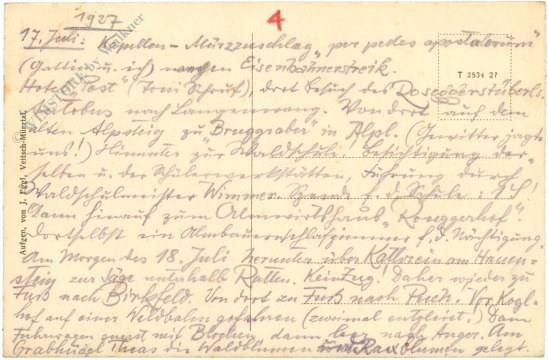 1927
4
17. Juli: Kapellen – Mürzzuschlag „per pedes apostolorum"
(Gattin u. ich) wegen Eisenbahnerstreik.
Hotel „Post" (Toni Schruf), dort Besuch des Roseggerstüberls.
Autobus nach Langenwang. Von dort auf dem
alten Alpsteig zu „Bruggraber" in Alpl. (Gewitter jagte
uns!) Hinunter zur Waldschule. Besichtigung der-
selben u. der Schülerwerkstätten, Führung durch
Waldschulmeister Wimmer. Spende f. d. Schule
Dann hinauf zum Almwirthaus „Roseggerhof".
Dortselbst ein Almbauernschlafzimmer f. d. Nächtigung.
Am Morgen des 18. Juli herunter über Kathrein am Hauen-
stein zur Säge unterhalb Ratten. Kein Zug! Daher wieder zu
Fuß nach Birkfeld. Von dort zu Fuß nach Puch. Vor Kogl-
hof auf einer Wildbahn gefahren (zweimal entgleist!) Dann
Fuhrwagen zuerst mit Blochen, dann leer nach Anger. Am
Grabhügel die Waldblumen und Raxblumen gelegt.
T 2534 27
Aufgen. von J. Eggl, Veitsch-Mürztal.